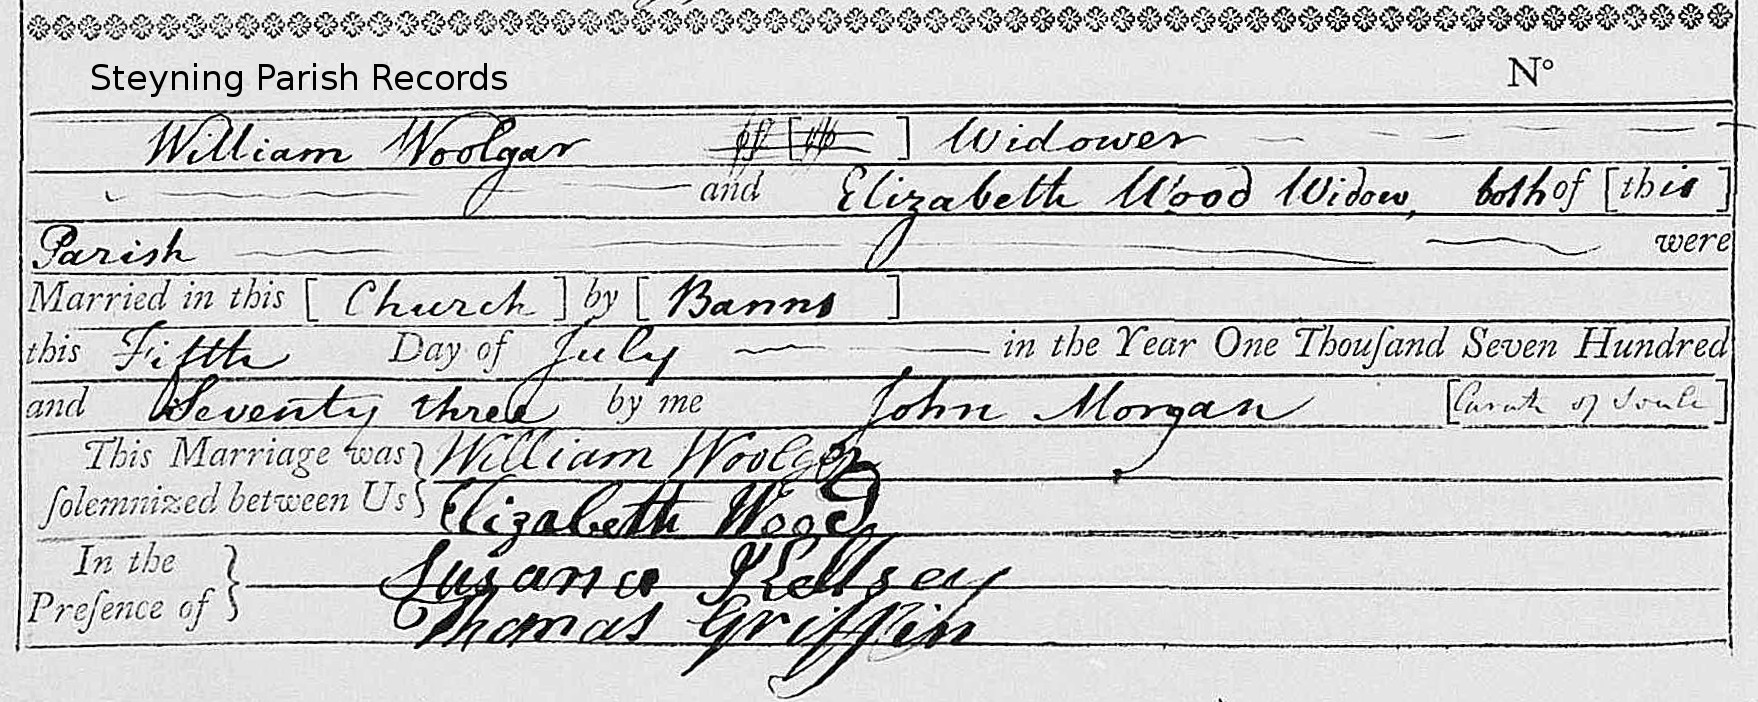 Steyning Parish Records
N°
William Woolgar [ ] Widower
and Elizabeth Wood Widow, both of [this]
Parish were
Married in this [Church] by [Banns]
this Fifth Day of July in the Year One Thouſand Seven Hundred
and Seventy three by me John Morgan [Curate of]
This Marriage was William Woolgar
ſolemnized between Us Elizabeth Wood
In the Susanna Kellsey
Preſence of Thomas Griffin